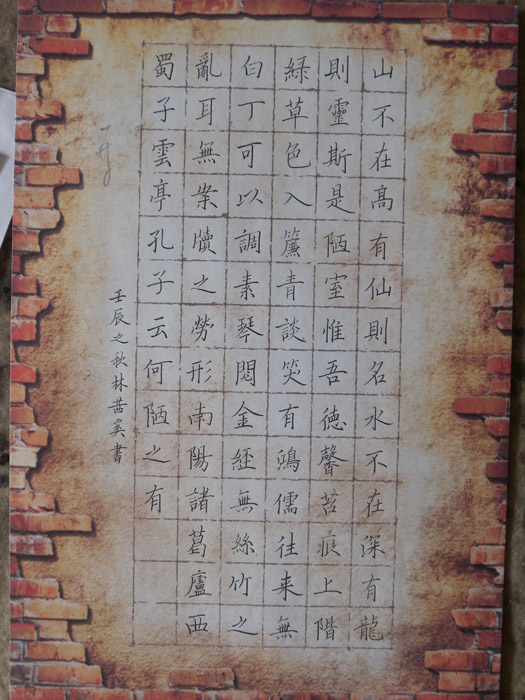 山不在髙有仙則名水不在深有龍
則靈斯是陋室惟吾德馨苔痕上階
綠草色入簾青談笑有鴻儒往来無
白丁可以調素琴閱金經無絲竹之
亂耳無案牘之勞形南陽諸葛廬西
蜀子雲亭孔子云何陋之有
壬辰之秋林茜奚書